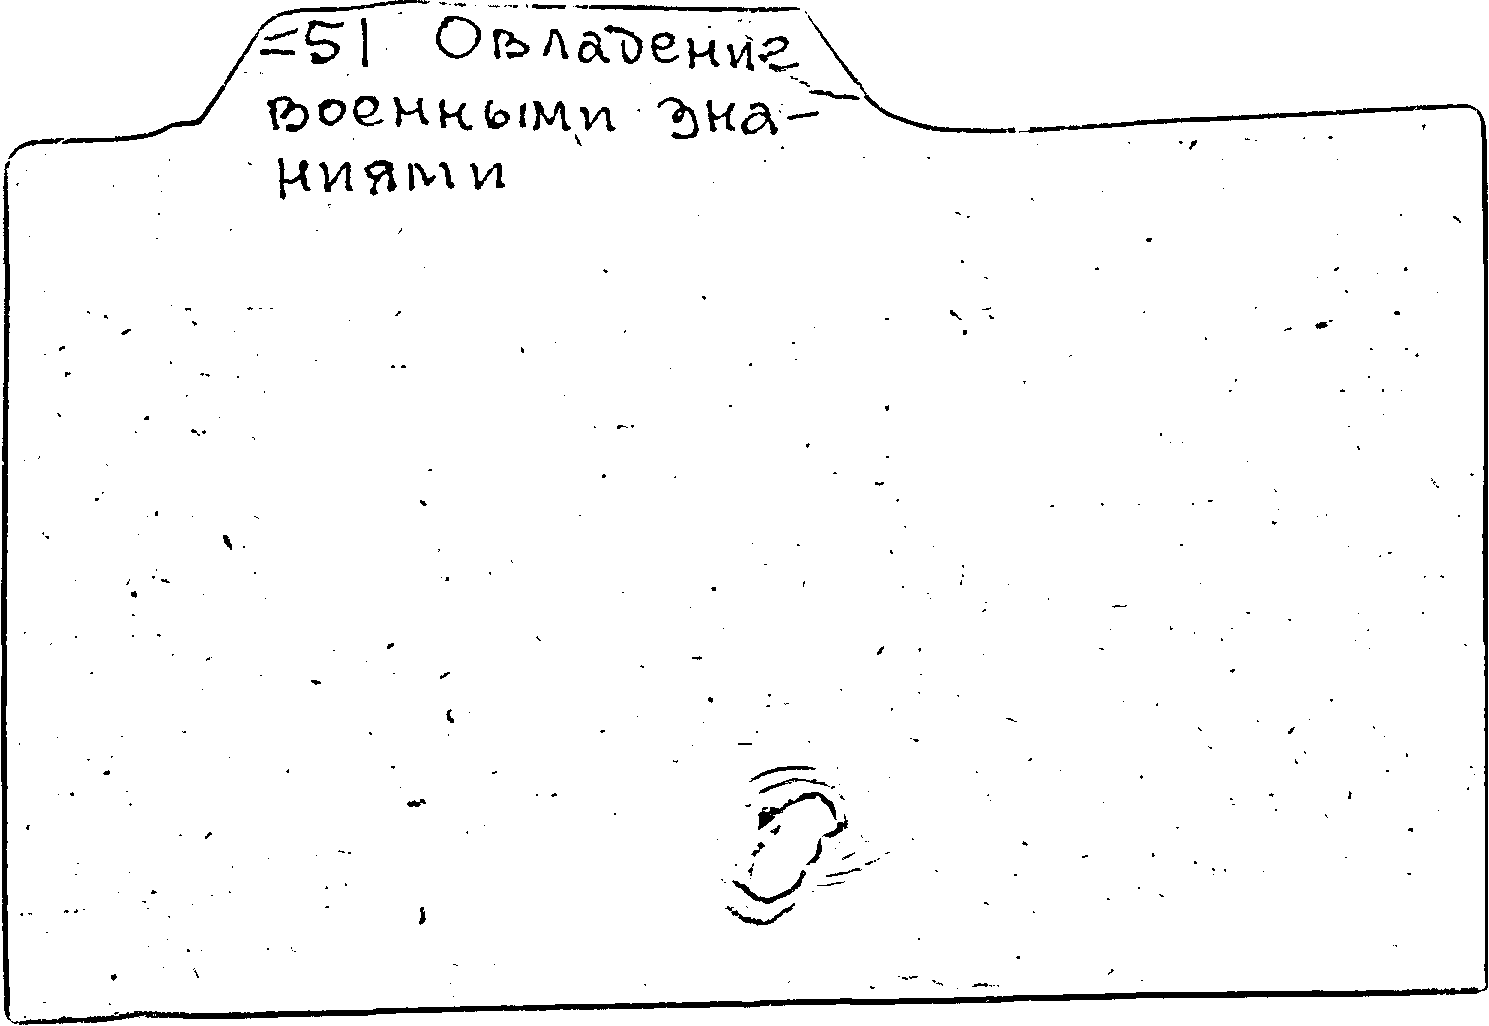 =51 Овладение
военными зна-
ниями